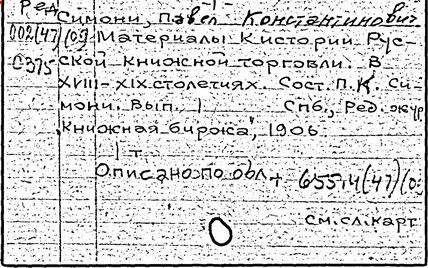 Ред Симони, Павел Константинович
002(47)(09) Материалы к истории Рус-
С375 ской книжной торговли. В
XVIII-XIX столетиях. Сост. П.К. Си-
мони. Вып. 1 Спб, Ред. жур
"Книжная биржа", 1906
1 т.
Описано по обл + 655.4(47)(0
см.сл.карт